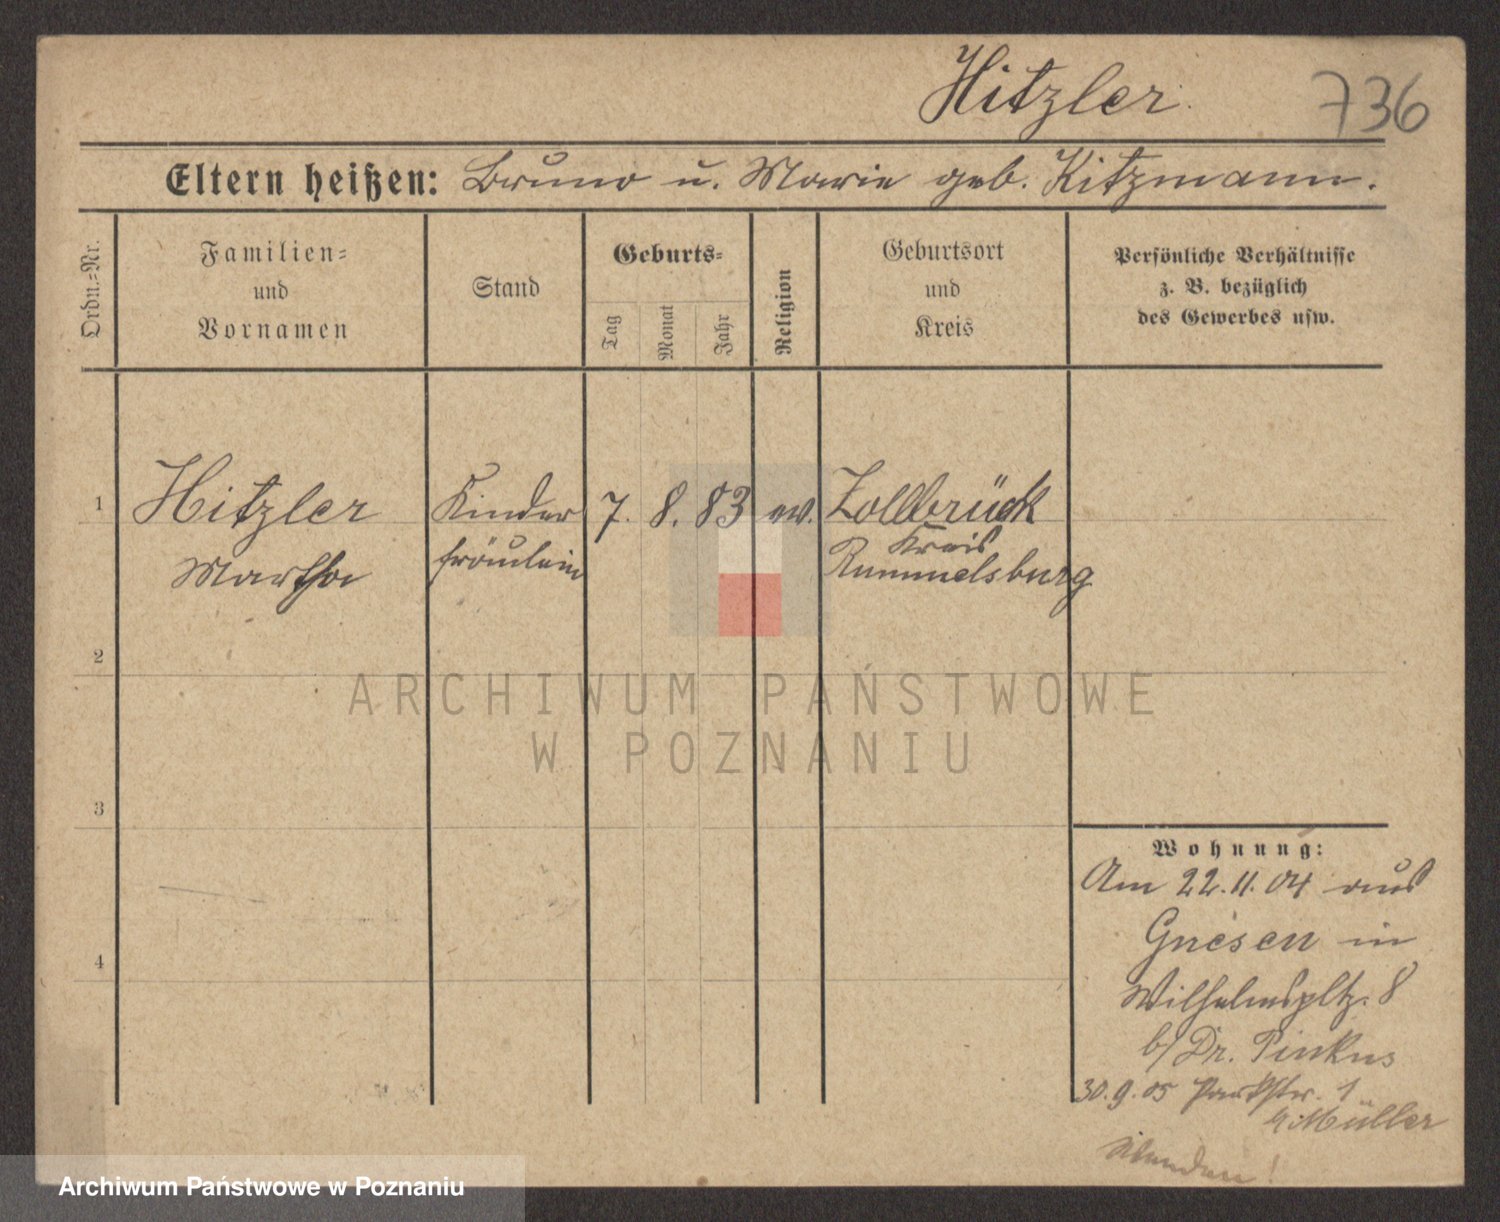 Hitzler.
736
Eltern heißen: Bruno u. Marie geb. Kitzmann.
Ordn.-Nr.
Familien-
und
Vornamen
Stand
Geburts-
Tag
Monat
Jahr
Religion
Geburtsort
und
Kreis
Persönliche Verhältnisse
z. B. bezüglich
des Gewerbes usw.
1
Hitzler
Martha
Kinder
fräulein
7. 8. 83
ev.
Zollbrück
Kreis
Rummelsburg
2
ARCHIWUM PAŃSTWOWE
W POZNANIU
3
4
Wohnung:
Am 22.11.04 aus
Gnesen in
Wilhelmspltz. 8
b/ Dr. Pinkus
30.9.05 Parkstr. 1
Müller
Wenden!
Archiwum Państwowe w Poznaniu